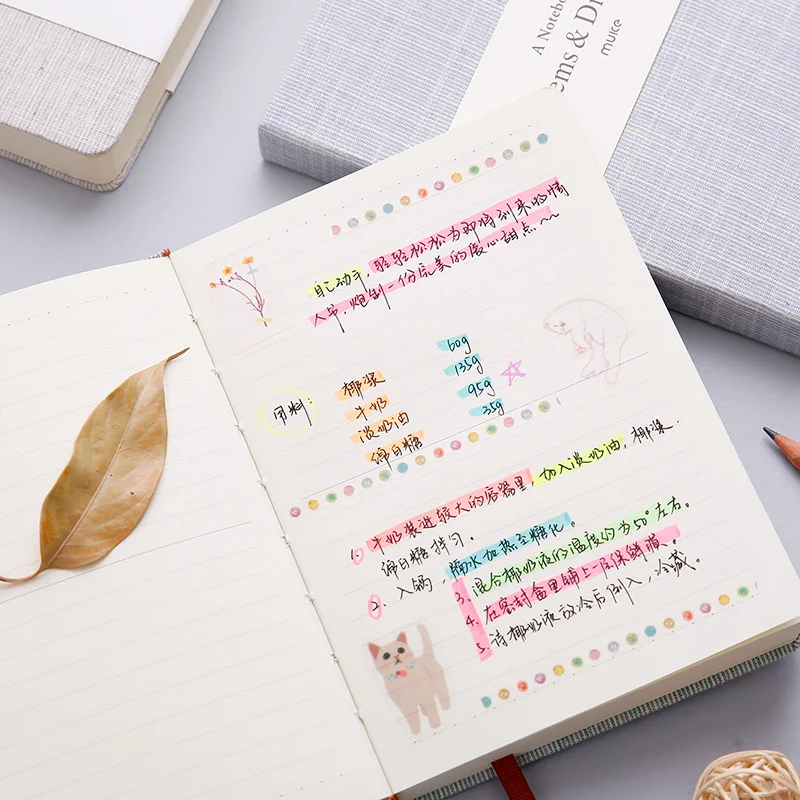 A Notebook
ems & D
muice
自己动手，轻轻松松为即将到来的情
人节，炮制一份完美的爱心甜点~~
用料：
椰浆 60g
牛奶 135g
淡奶油 95g
绵白糖 35g
1. 牛奶装进较大的容器里，加入淡奶油，椰浆.
绵白糖拌匀。
2. 入锅，隔水加热至糖化。
3. 混合椰奶液的温度约为50°左右。
4. 在密封盒里铺上一层保鲜膜。
5. 待椰奶液放冷后倒入，冷藏。